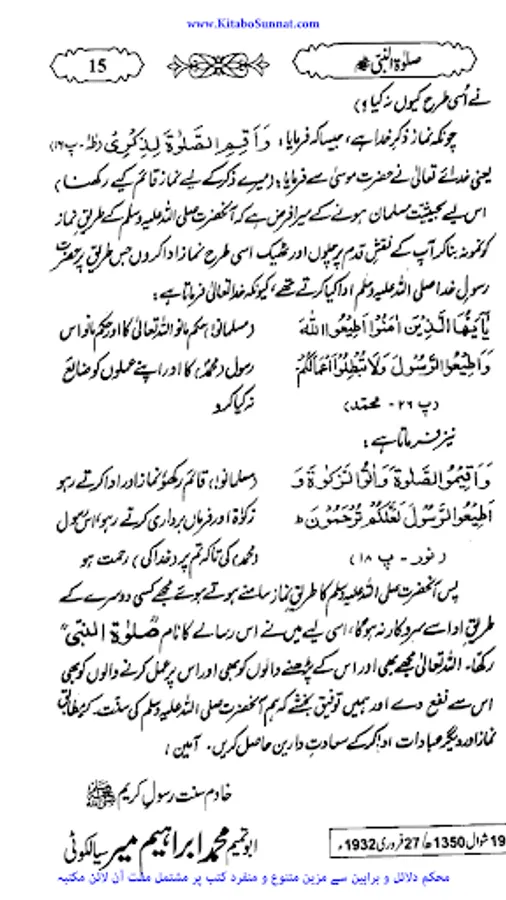 www.KitaboSunnat.com
صلوٰۃ النبی ﷺ
15
نے اُسی طرح کیوں نہ کیا؟)
چونکہ نماز ذکر خدا ہے، جیسا کہ فرمایا: وَاَقِيمِ الصَّلٰوةَ لِذِكْرِىْ (طٰہٰ۔پ۱۶)
یعنی خدائے تعالیٰ نے حضرت موسیٰ سے فرمایا: (میرے ذکر کے لیے نماز قائم کیے رکھنا)
اس لیے بحیثیت مسلمان ہونے کے میرا فرض ہے کہ آنحضرت صلی اللہ علیہ وسلم کے طریق نماز
کو نمونہ بنا کر آپ کے نقشِ قدم پر چلوں اور ٹھیک اسی طرح نماز ادا کروں جس طریق پر حضرت
رسولِ خدا صلی اللہ علیہ وسلم ادا کیا کرتے تھے، کیونکہ خدا تعالیٰ فرماتا ہے:
يٰٓاَيُّهَا الَّذِيْنَ اٰمَنُوْٓا اَطِيْعُوا اللّٰهَ (مسلمانو! حکم مانو اللہ تعالیٰ کا اور حکم مانو اس
وَاَطِيْعُوا الرَّسُوْلَ وَلَا تُبْطِلُوْٓا اَعْمَالَكُمْ رسول (محمدؐ) کا اور اپنے عملوں کو ضائع
(پ ۲۶ - محمد) نہ کیا کرو
نیز فرماتا ہے:
وَاَقِيْمُوا الصَّلٰوةَ وَاٰتُوا الزَّكٰوةَ وَ (مسلمانو!) قائم رکھو نماز اور ادا کرتے رہو
اَطِيْعُوا الرَّسُوْلَ لَعَلَّكُمْ تُرْحَمُوْنَ ط زکوٰۃ اور فرماں برداری کرتے رہو اس رسول
(نور - پ ۱۸) (محمدؐ) کی تاکہ تم پر (خدا کی) رحمت ہو
پس آنحضرت صلی اللہ علیہ وسلم کا طریقِ نماز سامنے ہوتے ہوئے مجھے کسی دوسرے کے
طریق ادا سے سروکار نہ ہوگا، اسی لیے میں نے اس رسالے کا نام "صلوٰۃ النبیؐ"
رکھا۔ اللہ تعالیٰ مجھے بھی اور اس کے پڑھنے والوں کو بھی اور اس پر عمل کرنے والوں کو بھی
اس سے نفع دے اور ہمیں توفیق بخشے کہ ہم آنحضرت صلی اللہ علیہ وسلم کی سنت کے مطابق
نماز اور دیگر عبادات ادا کر کے سعادتِ دارین حاصل کریں۔ آمین!
خادم سنت رسول کریم ﷺ
ابو تمیم محمد ابراہیم میر سیالکوٹی
19 شوال 1350ھ/27 فروری 1932ء
محکم دلائل و براہین سے مزین متنوع و منفرد کتب پر مشتمل مفت آن لائن مکتبہ